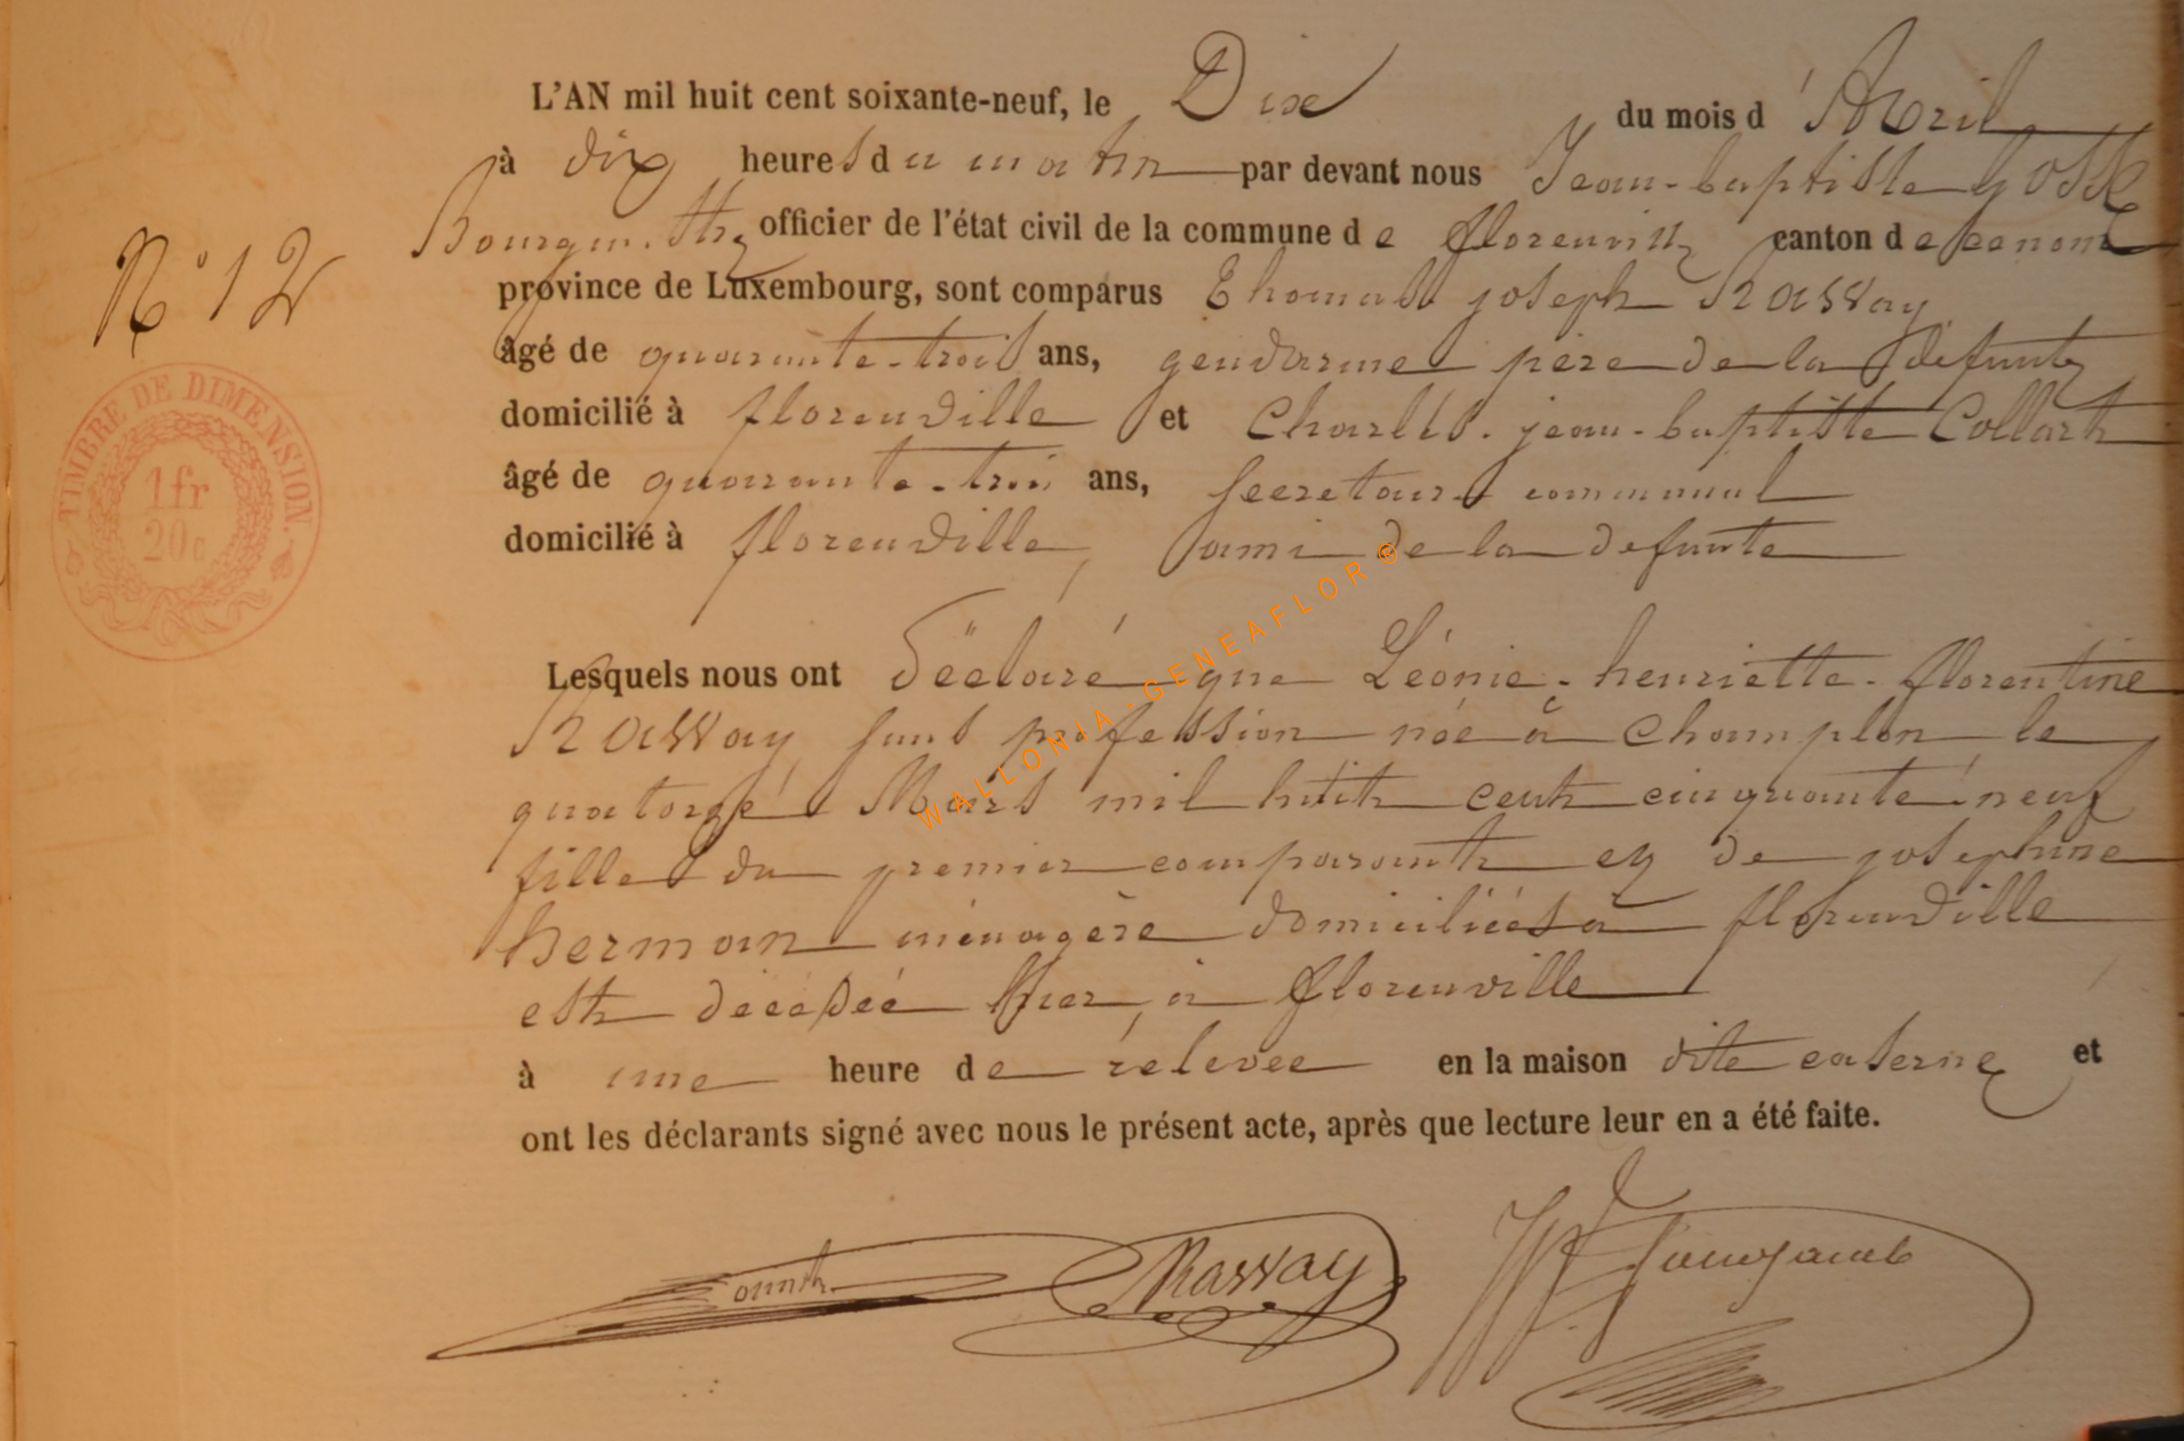 L'AN mil huit cent soixante-neuf, le Dix du mois d'Avril
à dix heures du matin par devant nous Jean-baptiste
Bourgm. officier de l'état civil de la commune de florenville canton de
N° 12
province de Luxembourg, sont comparus Thomas joseph Rassay
âgé de quarante-trois ans, gendarme père de la défunte
domicilié à florenville et Charles-jean-baptiste Collart
âgé de quarante-trois ans, secretaire communal
domicilié à florenville, ami de la defunte
TIMBRE DE DIMENSION.
1fr
20c
Lesquels nous ont déclaré que Léonie-henriette-florentine
Rassay sans profession née à Champlon le
quatorze Mars mil huit cent cinquante-neuf
fille du premier comparant et de josephine
herman ménagère domiciliées à florenville
est décédée hier, à florenville
à une heure de rélevée en la maison dite caserne et
ont les déclarants signé avec nous le présent acte, après que lecture leur en a été faite.
Rassay
WALLONIA-GENEAFLOR ©